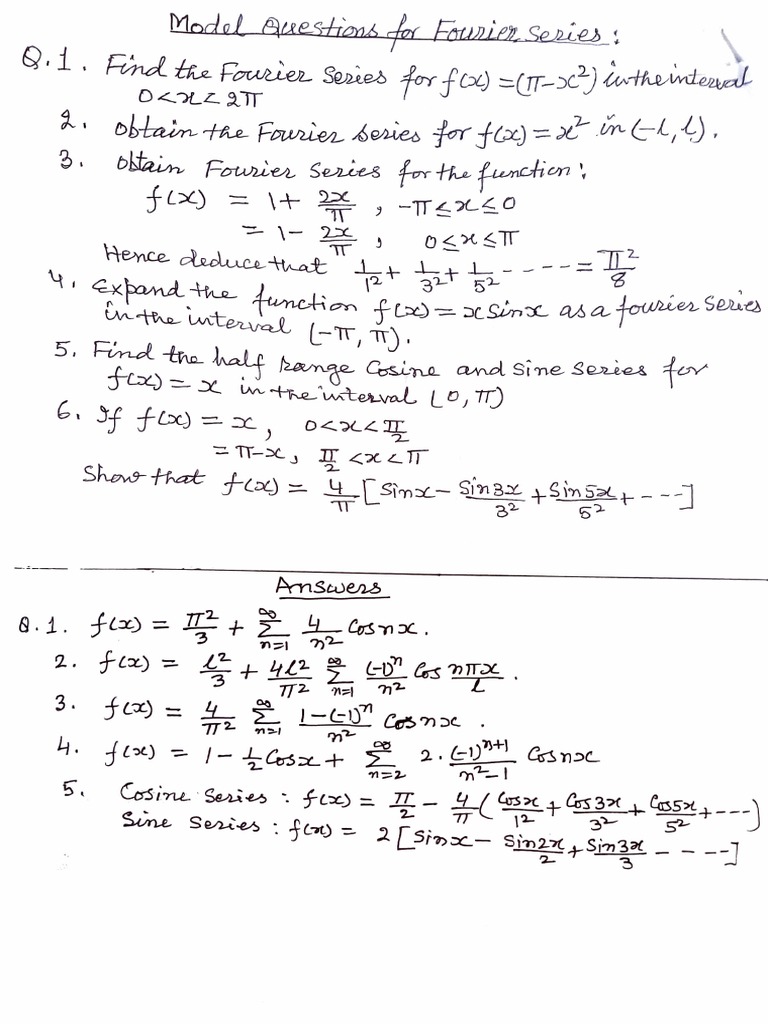 Model Questions for Fourier Series:
Q.1. Find the Fourier Series for f(x) = (π-x²) in the interval
0<x<2π
2. Obtain the Fourier series for f(x) = x² in (-l, l).
3. Obtain Fourier Series for the function:
f(x) = 1+ 2x/π , -π≤x≤0
= 1- 2x/π , 0≤x≤π
Hence deduce that 1/1² + 1/3² + 1/5² ----- = π²/8
4. Expand the function f(x) = x sinx as a fourier series
in the interval (-π, π).
5. Find the half range Cosine and sine series for
f(x) = x in the interval (0, π)
6. If f(x) = x, 0<x<π/2
= π-x, π/2 <x<π
Show that f(x) = 4/π [Sinx - Sin3x/3² + Sin5x/5² + ----]
Answers
Q.1. f(x) = π²/3 + ∞ Σ n=1 4/n² Cosnx.
2. f(x) = l²/3 + 4l²/π² ∞ Σ n=1 (-1)ⁿ/n² Cos nπx/l .
3. f(x) = 4/π² ∞ Σ n=1 1-(-1)ⁿ/n² Cosnx .
4. f(x) = 1 - 1/2 Cosx + ∞ Σ n=2 2.(-1)ⁿ⁺¹/n²-1 Cosnx
5. Cosine Series : f(x) = π/2 - 4/π (Cosx/1² + Cos3x/3² + Cos5x/5² + ---)
Sine Series : f(x) = 2 [Sinx - Sin2x/2 + Sin3x/3 - - - --]